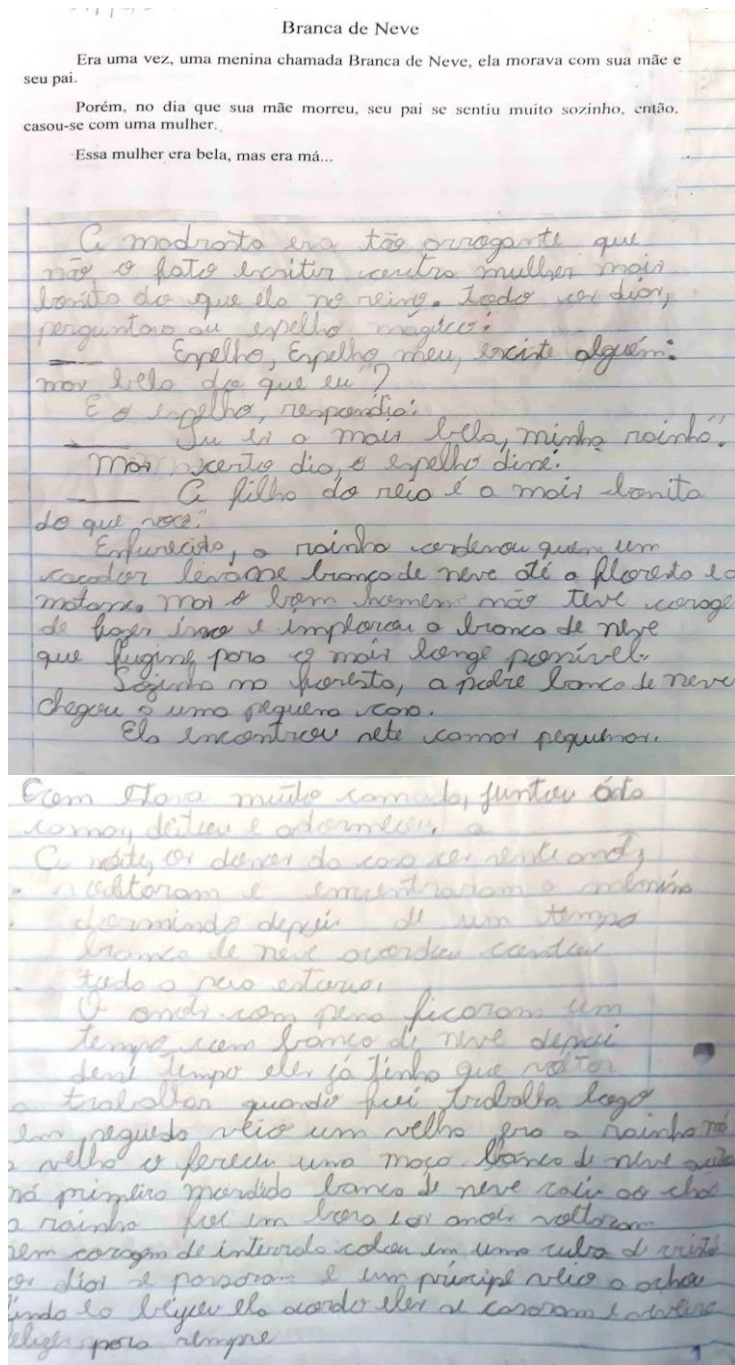 Branca de Neve
Era uma vez, uma menina chamada Branca de Neve, ela morava com sua mãe e
seu pai.
Porém, no dia que sua mãe morreu, seu pai se sentiu muito sozinho, então,
casou-se com uma mulher.
Essa mulher era bela, mas era má...
A madrasta era tão arrogante que
não o fato escritir outra mulher mais
bonita do que ela no reino. todo os dias,
perguntava au espelho mágico:
— Espelho, Espelho meu, exciste alguém
mas bela do que eu?
E o espelho, respondia:
— Tu es a mais bela, minha rainha."
Mas certo dia, o espelho disse:
— A filha do reio é a mais bonita
do que você."
Enfurecida, a rainha ordenou quen um
caçador levasse branca de neve até a floresta e a
matasse. mas o bom homem não teve corage
de fazer isso e implorou a branca de neve
que fugisse para o mais longe possível.
Sozinha na foresta, a pobre banca de neve
chegou a uma pequena casa.
Ela encontrou sete camas pequenas.
Com Stava muito camada, juntou
camas, deitou e adormeceu. a
A noite, os donos da casa os sente anois
voltaram e encuentraram a menina
dormindo depois de um tempo
branca de neve acordou contou
tudo a seus estavai
O anois com pena ficaram um
tempo com branca de neve depoi
desse tempo eles já tinha que voltar
a trabalhar quando foi trabalha logo
em seguida veio um velha era a rainha má
a velha o fereceu uma maça banca de neve
ná primeira mordida banca de neve caiu ao chão
a rainha foi im bora e os anois voltaram
sem coragem de interrala colou em uma cuba d
os dias se passaram e um príncipe veio a achou
linda e a beijou ela acordo eles se casaram e
felizes para sempre